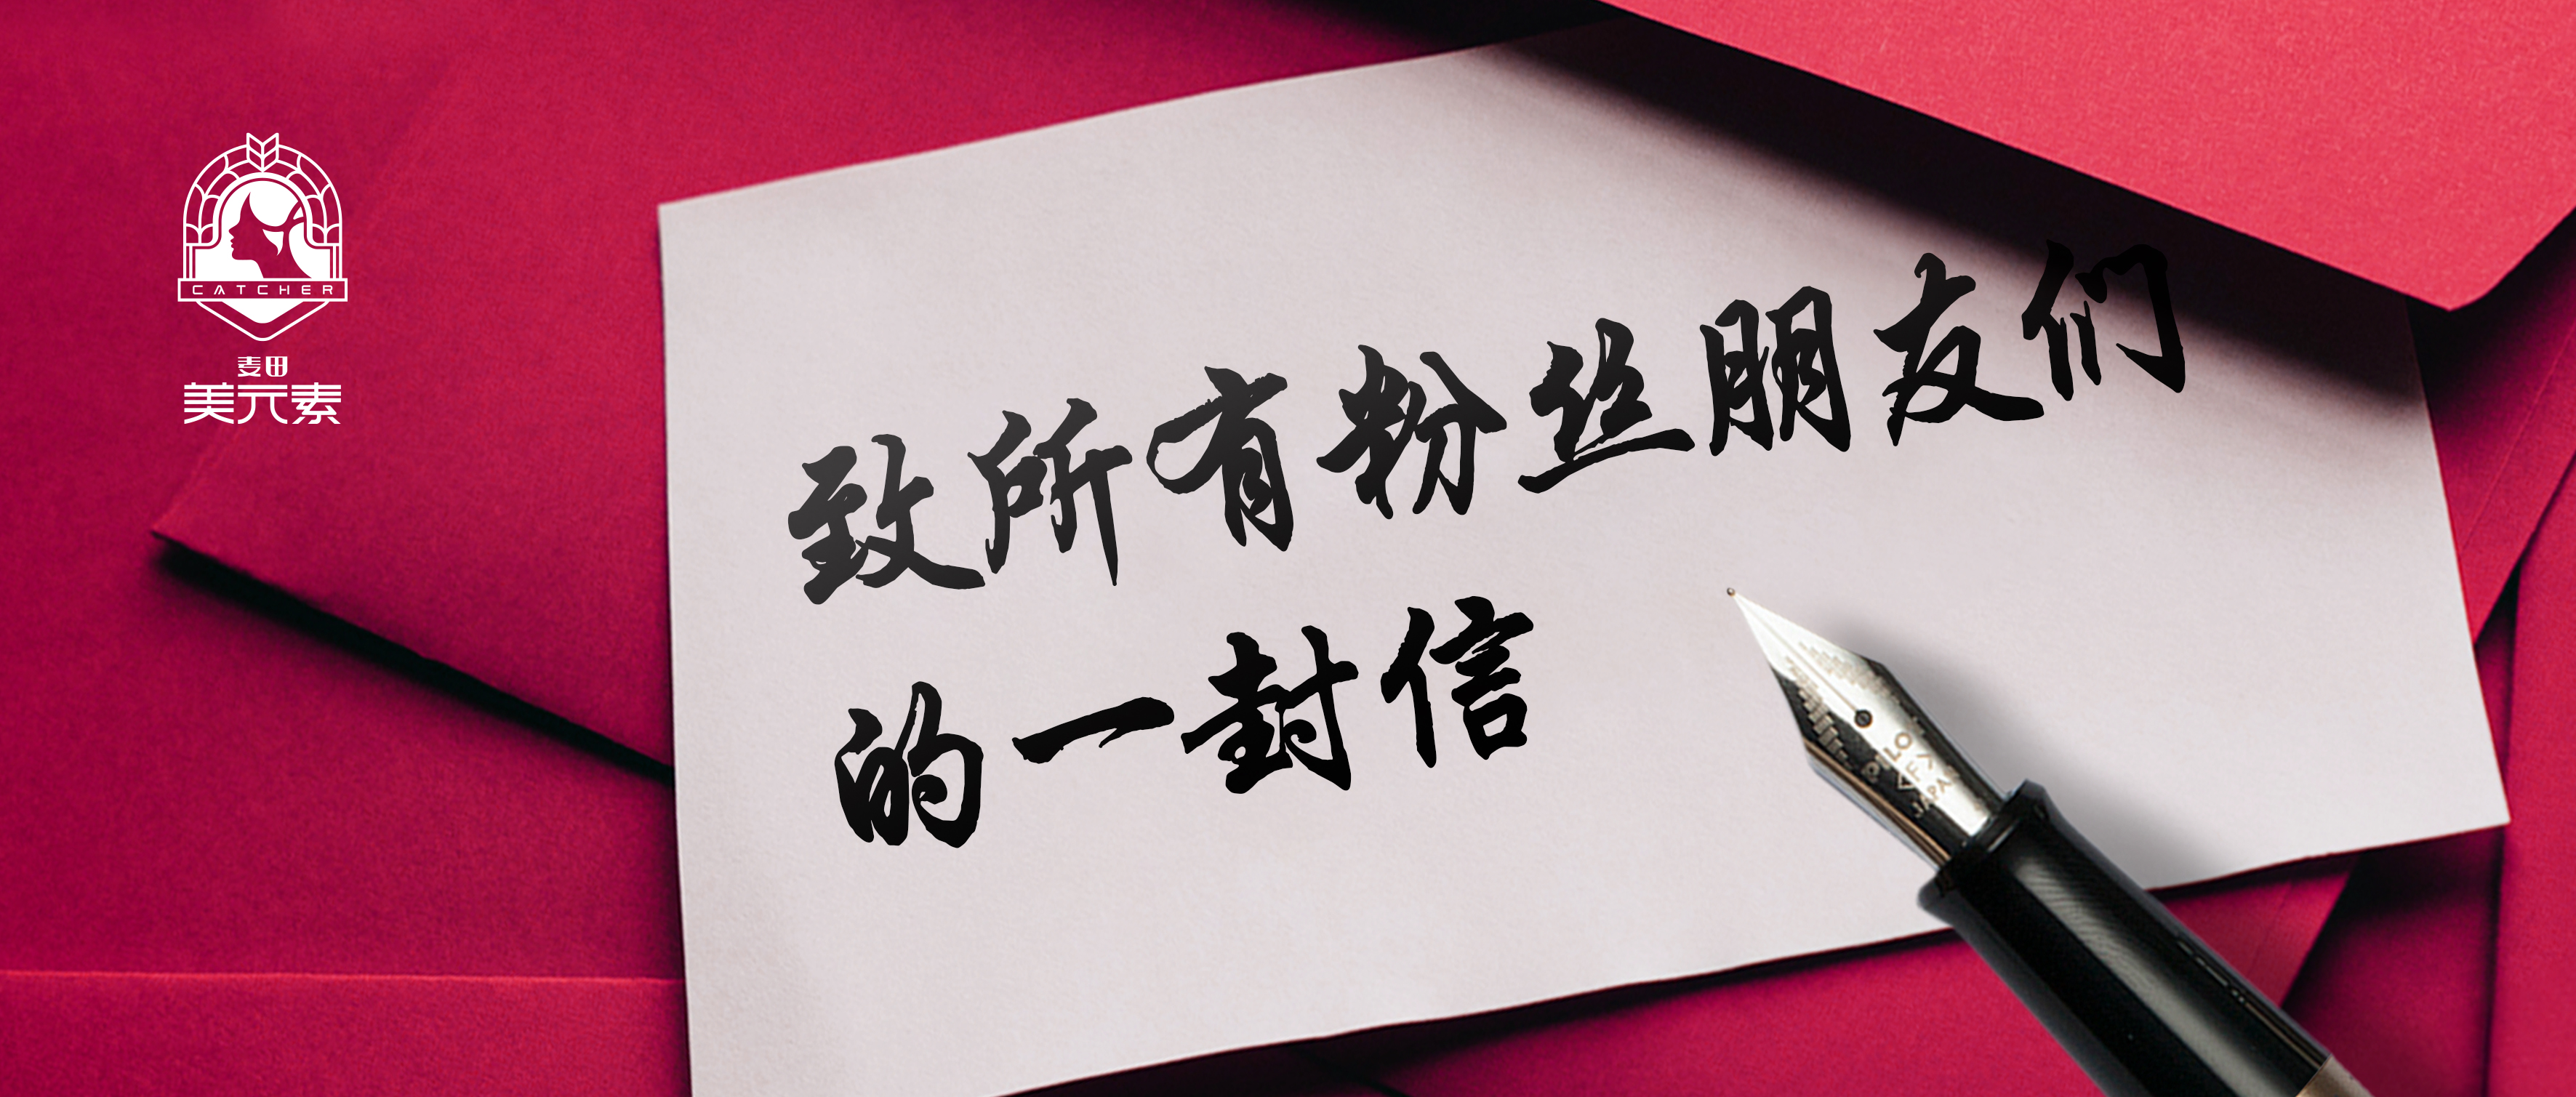 CATCHER
麦田
美元素
致所有粉丝朋友们
的一封信
PILOT
JAPAN